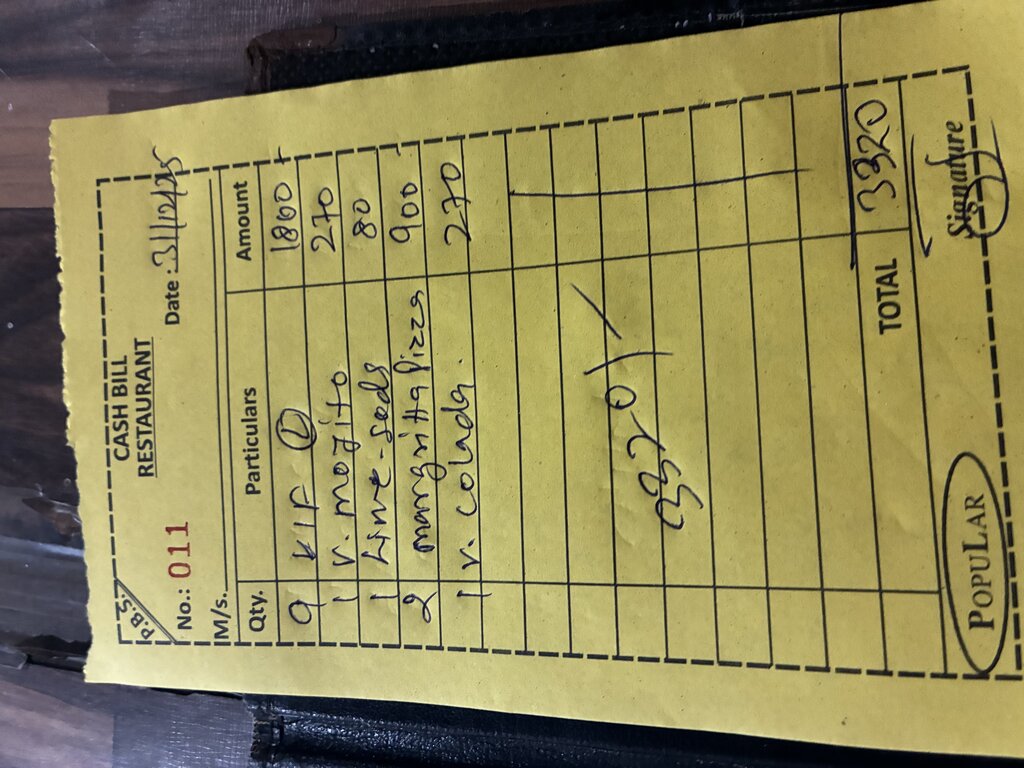 P.B.S.
CASH BILL
RESTAURANT
No.: 011 Date : 31/12/25
M/s.
Qty. Particulars Amount
9 KIF (L) 1800
1 V. mojito 270
1 Lime-soda 80
2 margritta pizza 900
1 V. colada. 270
3320/-
TOTAL 3320
POPULAR Signature